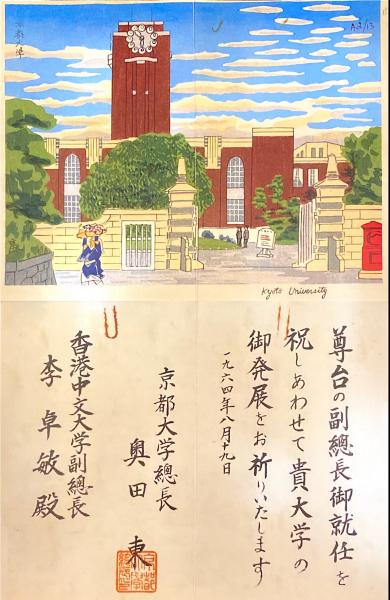 京都大學
A 2/13
Kyoto University
尊台の副總長御就任を
祝しあわせて貴大学の
御発展をお祈りいたします
一九六四年八月十九日
京都大学總長
奥田 東
香港中文大学副總長
李卓敏殿